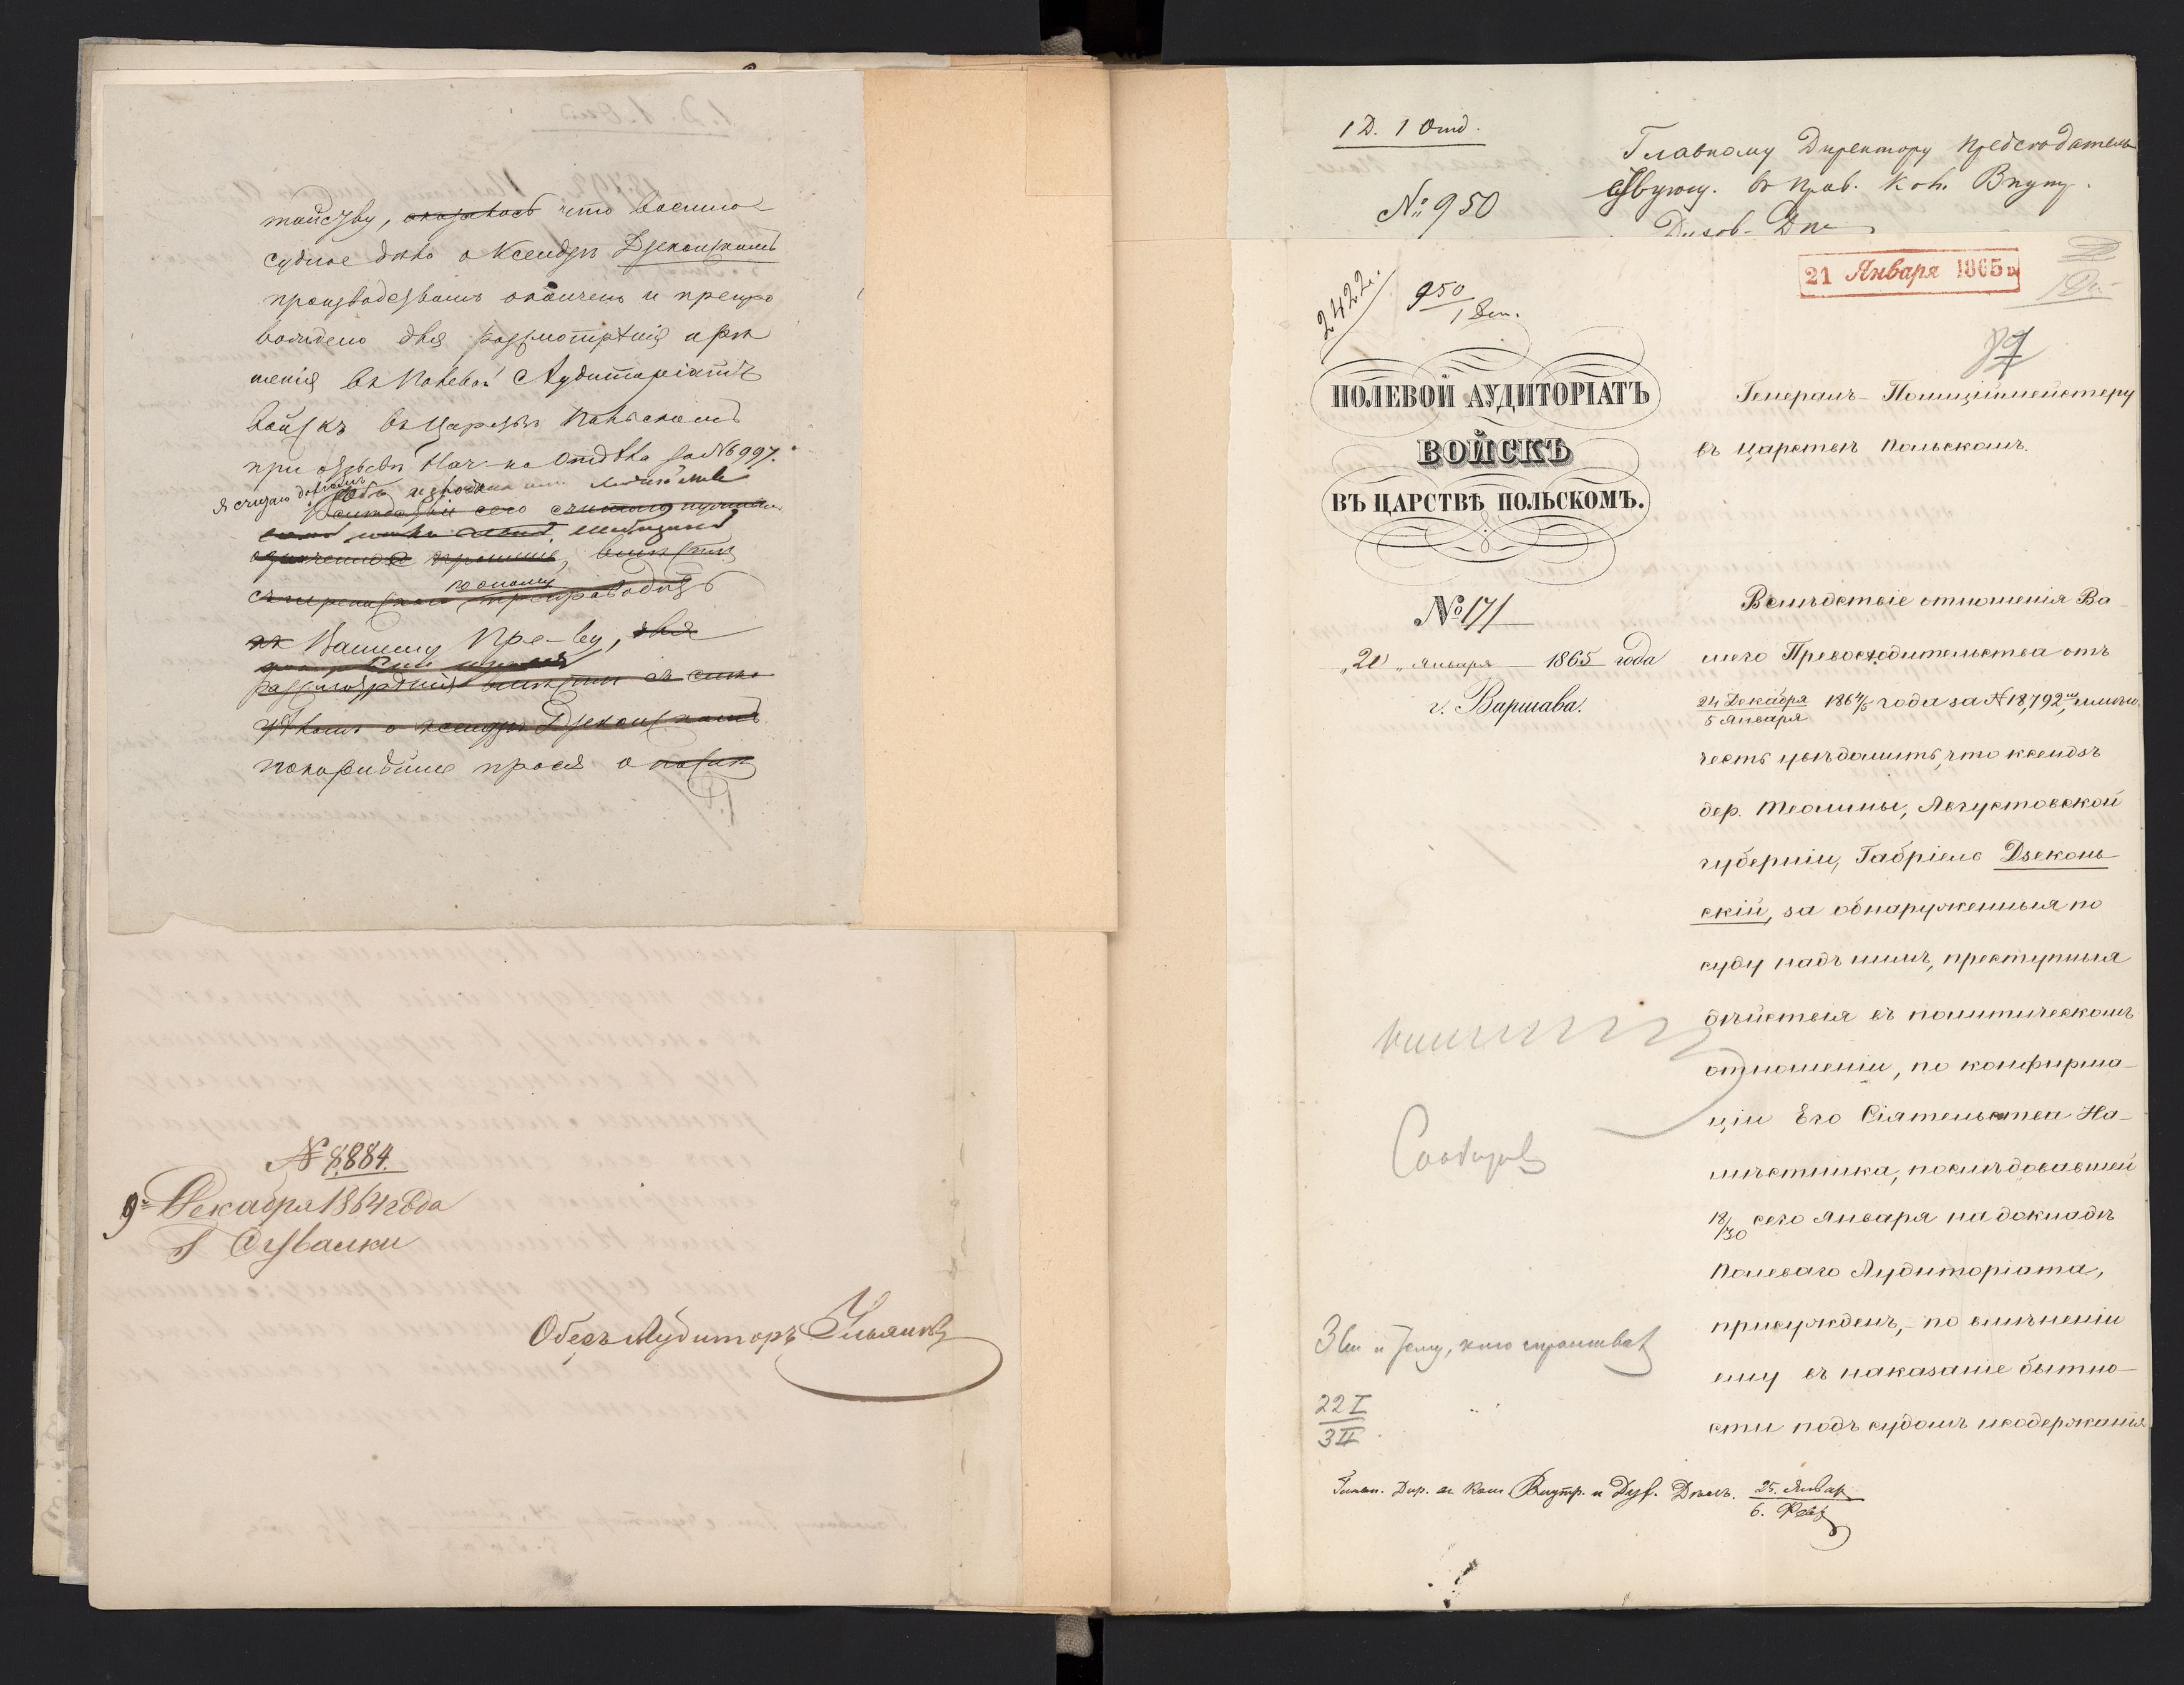 тайству, оказалось что военно
судное дѣло о Ксендзѣ Дзеконскомъ
производствомъ окончено и препро
вождено для разсмотрѣнія и рѣ
шенія въ Полевой Аудиторіатъ
войскъ въ Царствѣ Польскомъ
при отзывѣ Нач-ка Отдѣла за № 6997.
Я считаю
означенное
по оному
препроводить
къ Вашему Пре-ву, для
разсмотрѣнія вмѣстѣ съ симъ
дѣломъ о ксендзѣ Дзеконскомъ
покорнѣйше прося о
№ 8884.
9 Декабря 1864 года
Г Сувалки
Оберъ Аудиторъ Ульяновъ
1 Д. 1 Отд.
№ 950
Главному Директору Предсѣдатель
въ Прав. Ком. Внутр.
Духов. Дѣл
21 Января 1865
2422.
950
1 Деп.
ПОЛЕВОЙ АУДИТОРІАТЪ
ВОЙСКЪ
ВЪ ЦАРСТВѢ ПОЛЬСКОМЪ.
№ 171
„20„ Января 1865 года
г. Варшава.
Генералъ-Полиціймейстеру
въ Царствѣ Польскомъ.
Вслѣдствіе отношенія Ва-
шего Превосходительства отъ
24 Декабря / 5 Января 1864/5 года за № 18,792мъ, имѣю
честь увѣдомить, что ксендзъ
дер. Теолины, Августовской
губерніи, Габріель Дзеконь-
скій, за обнаруженныя по
суду надъ нимъ, преступныя
дѣйствія въ политическомъ
отношеніи, по конфирма-
ціи Его Сіятельства На-
мѣстника, послѣдовавшей
18/30 сего Января на докладѣ
Полеваго Аудиторіата,
присужденъ,- по вмѣненіи
ему въ наказаніе бытно-
сти подъ судомъ и содержанія
Сообщить
и тому, кто спрашивалъ
22 I
3 II
Главн. Дир. въ Ком. Внутр. и Дух. Дѣлъ. 25. Январ
6. Фев